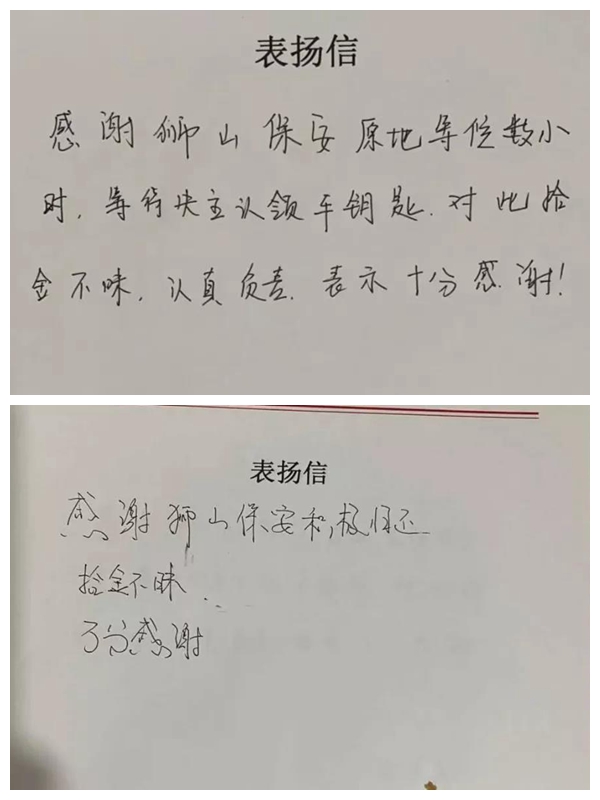 表扬信
感谢狮山保安原地等候数小
时，等待失主认领车钥匙.对此拾
金不昧，认真负责.表示十分感谢!
表扬信
感谢狮山保安积极归还
拾金不昧
万分感谢